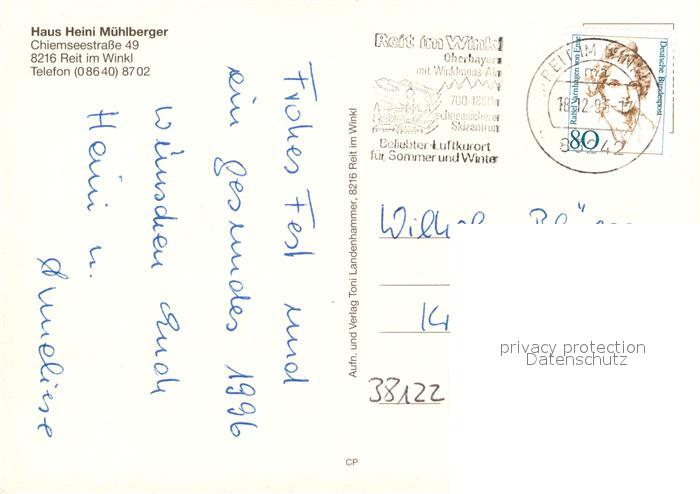 Haus Heini Mühlberger
Chiemseestraße 49
8216 Reit im Winkl
Telefon (08640) 8702
Frohes Fest und
ein gesundes 1996
wünschen Euch
Heini u.
Anneliese
Aufn. und Verlag Toni Landenhammer, 8216 Reit im Winkl
CP
Reit im Winkl
Oberbayern
mit Winklmoos-Alm
700-1800m
schneesicheres
Skizentrum
Beliebter Luftkurort
für Sommer und Winter
REIT IM WINKL
83242
Deutsche Bundespost
Rahel Varnhagen von Ense
80
38122
privacy protection
Datenschutz